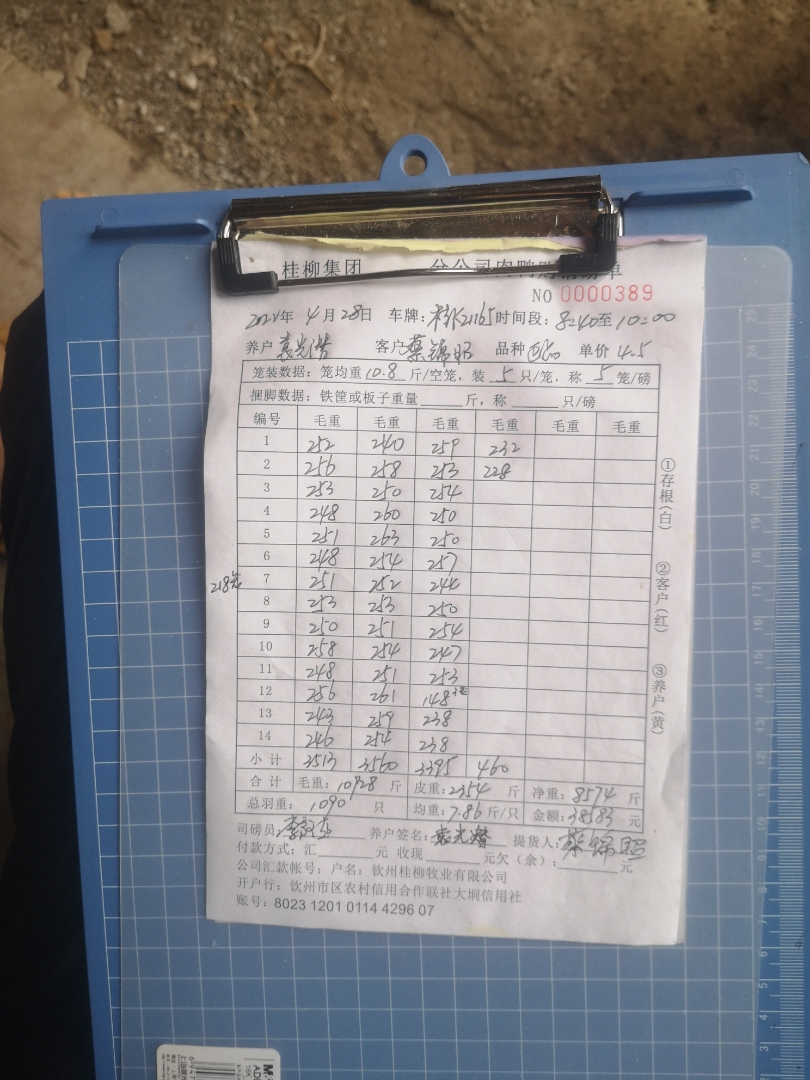 桂柳集团 分公司肉鸭购销磅单
NO 0000389
年 4月28日 车牌: 时间段: 8:40至10:00
养户 客户 蔡锦昭 品种 单价 4.5
笼装数据: 笼均重 10.8 斤/空笼, 装 5 只/笼, 称 5 笼/磅
捆脚数据: 铁筐或板子重量 斤, 称 只/磅
编号 毛重 毛重 毛重 毛重 毛重 毛重
1 252 240 259 232
2 256 258 253 228
3 253 250 254
4 248 260 250
5 251 263 250
6 248 254 257
218笼
7 251 252 244
8 253 253 250
9 250 251 254
10 258 254 247
11 248 251 253
12 256 261 148 3笼
13 243 259 238
14 246 254 238
小计 3513 3560 3395 460
合计 毛重: 10928 斤 皮重: 2354 斤 净重: 8574 斤
总羽重: 1090 只 均重: 7.86 斤/只 金额: 38583 元
司磅员: 养户签名: 提货人:
付款方式: 汇 元 收现 元欠(余): 元
公司汇款帐号: 户名: 钦州桂柳牧业有限公司
开户行: 钦州市区农村信用合作联社大垌信用社
账号: 8023 1201 0114 4296 07
①存根(白)
②客户(红)
③养户(黄)